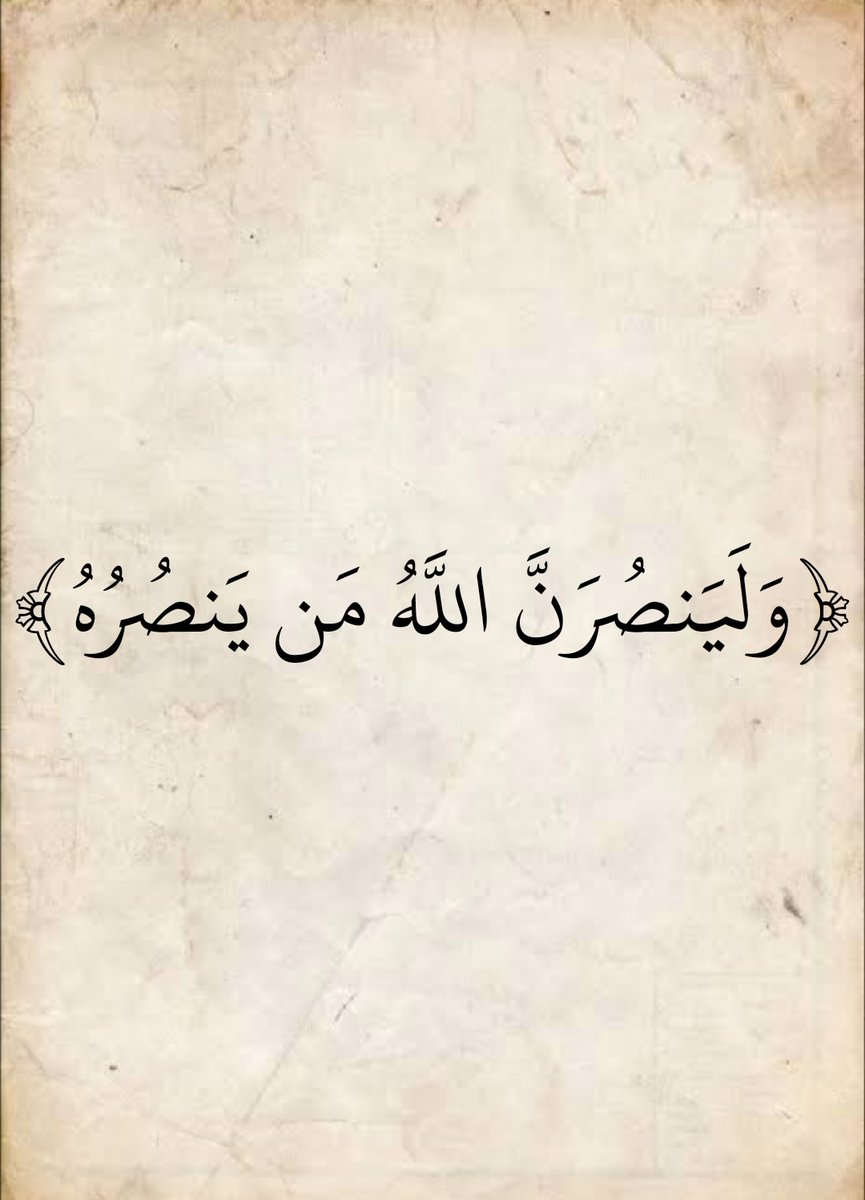 ﴿وَلَيَنصُرَنَّ اللَّهُ مَن يَنصُرُهُ﴾